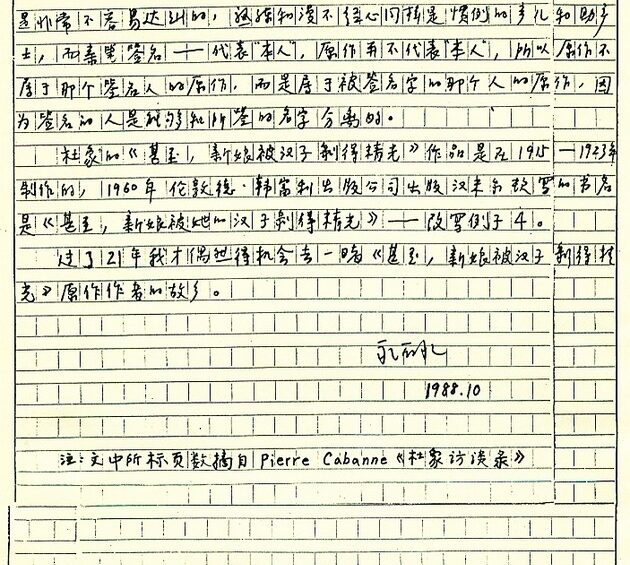 是非常不容易达到的，经综和漫不经心同样是惯例的产儿和助产
士，而亲笔签名——代表"本人"，原作再不代表"本人"，所以原作不
属于那个签名人的原作，而是属于被签名字的那个人的原作，因
为签名的人是能够和所签的名字分离的。
杜象的《甚至，新娘被汉子剥得精光》作品是在1915—1923年
制作的，1960年伦敦德·韩富利出版公司出版汉米尔敦写的书名
是《甚至，新娘被她的汉子剥得精光》——改写例子4。
过了21年我才偶然得机会去一睹《甚至，新娘被汉子剥得精
光》原作作者的故乡。
1988.10
注：文中所标页数摘自 Pierre Cabanne《杜象访谈录》